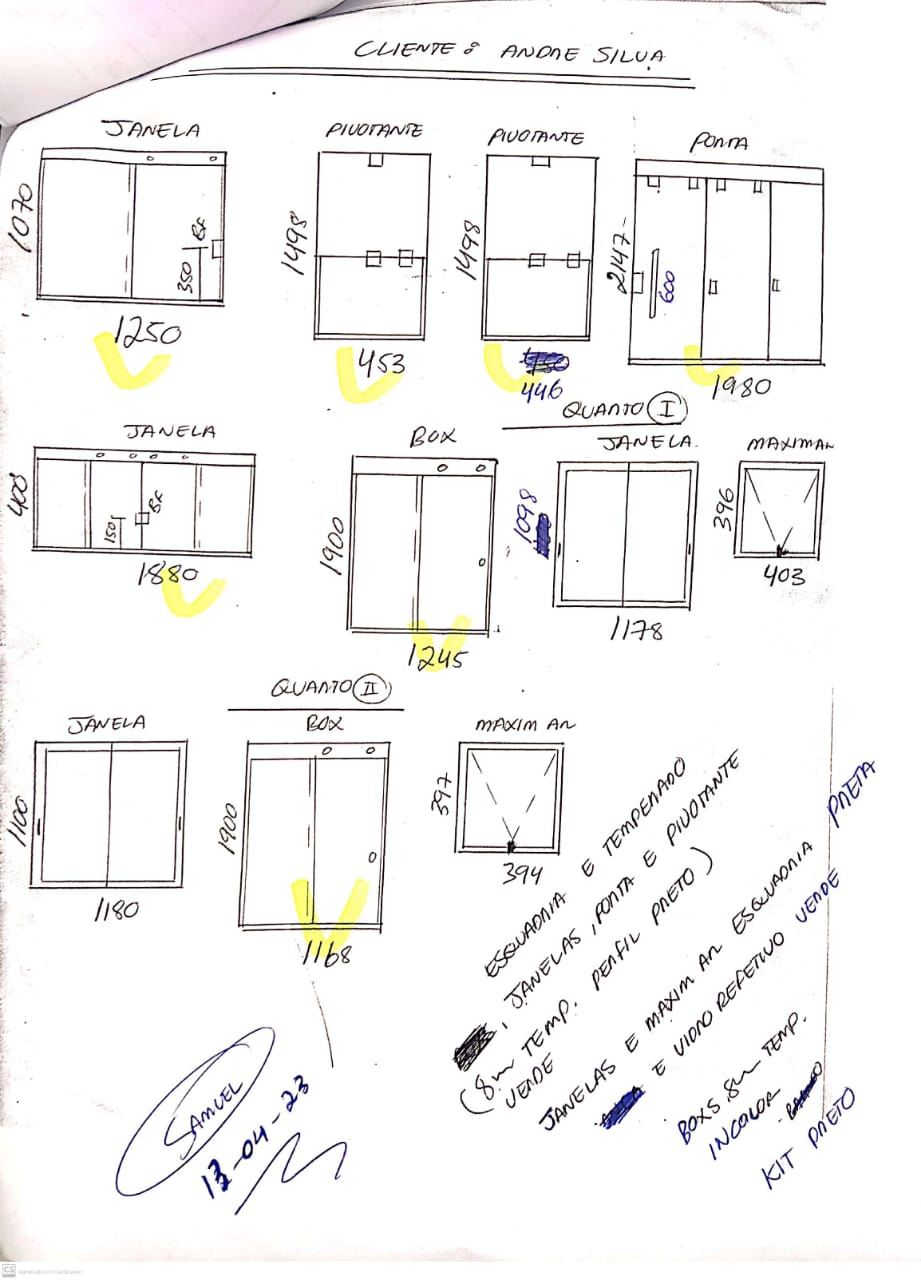 CLIENTE: ANDRE SILVA
JANELA
1070
350
BX
1250
PIVOTANTE
1498
453
PIVOTANTE
1498
446
PORTA
2147
600
1980
JANELA
400
150
BX
1880
BOX
1900
1245
QUARTO I
JANELA.
1098
1178
MAXIMAR
396
403
QUARTO II
JANELA
1100
1180
BOX
1900
1168
MAXIM AR
397
394
ESQUADRIA E TEMPERADO
, JANELAS, PORTA E PIVOTANTE
(8m TEMP. PERFIL PRETO)
VERDE
JANELAS E MAXIM AR ESQUADRIA PRETA
E VIDRO REFETIVO VERDE
BOXS 8m TEMP.
INCOLOR
KIT PRETO
SAMUEL
13-04-23
CS